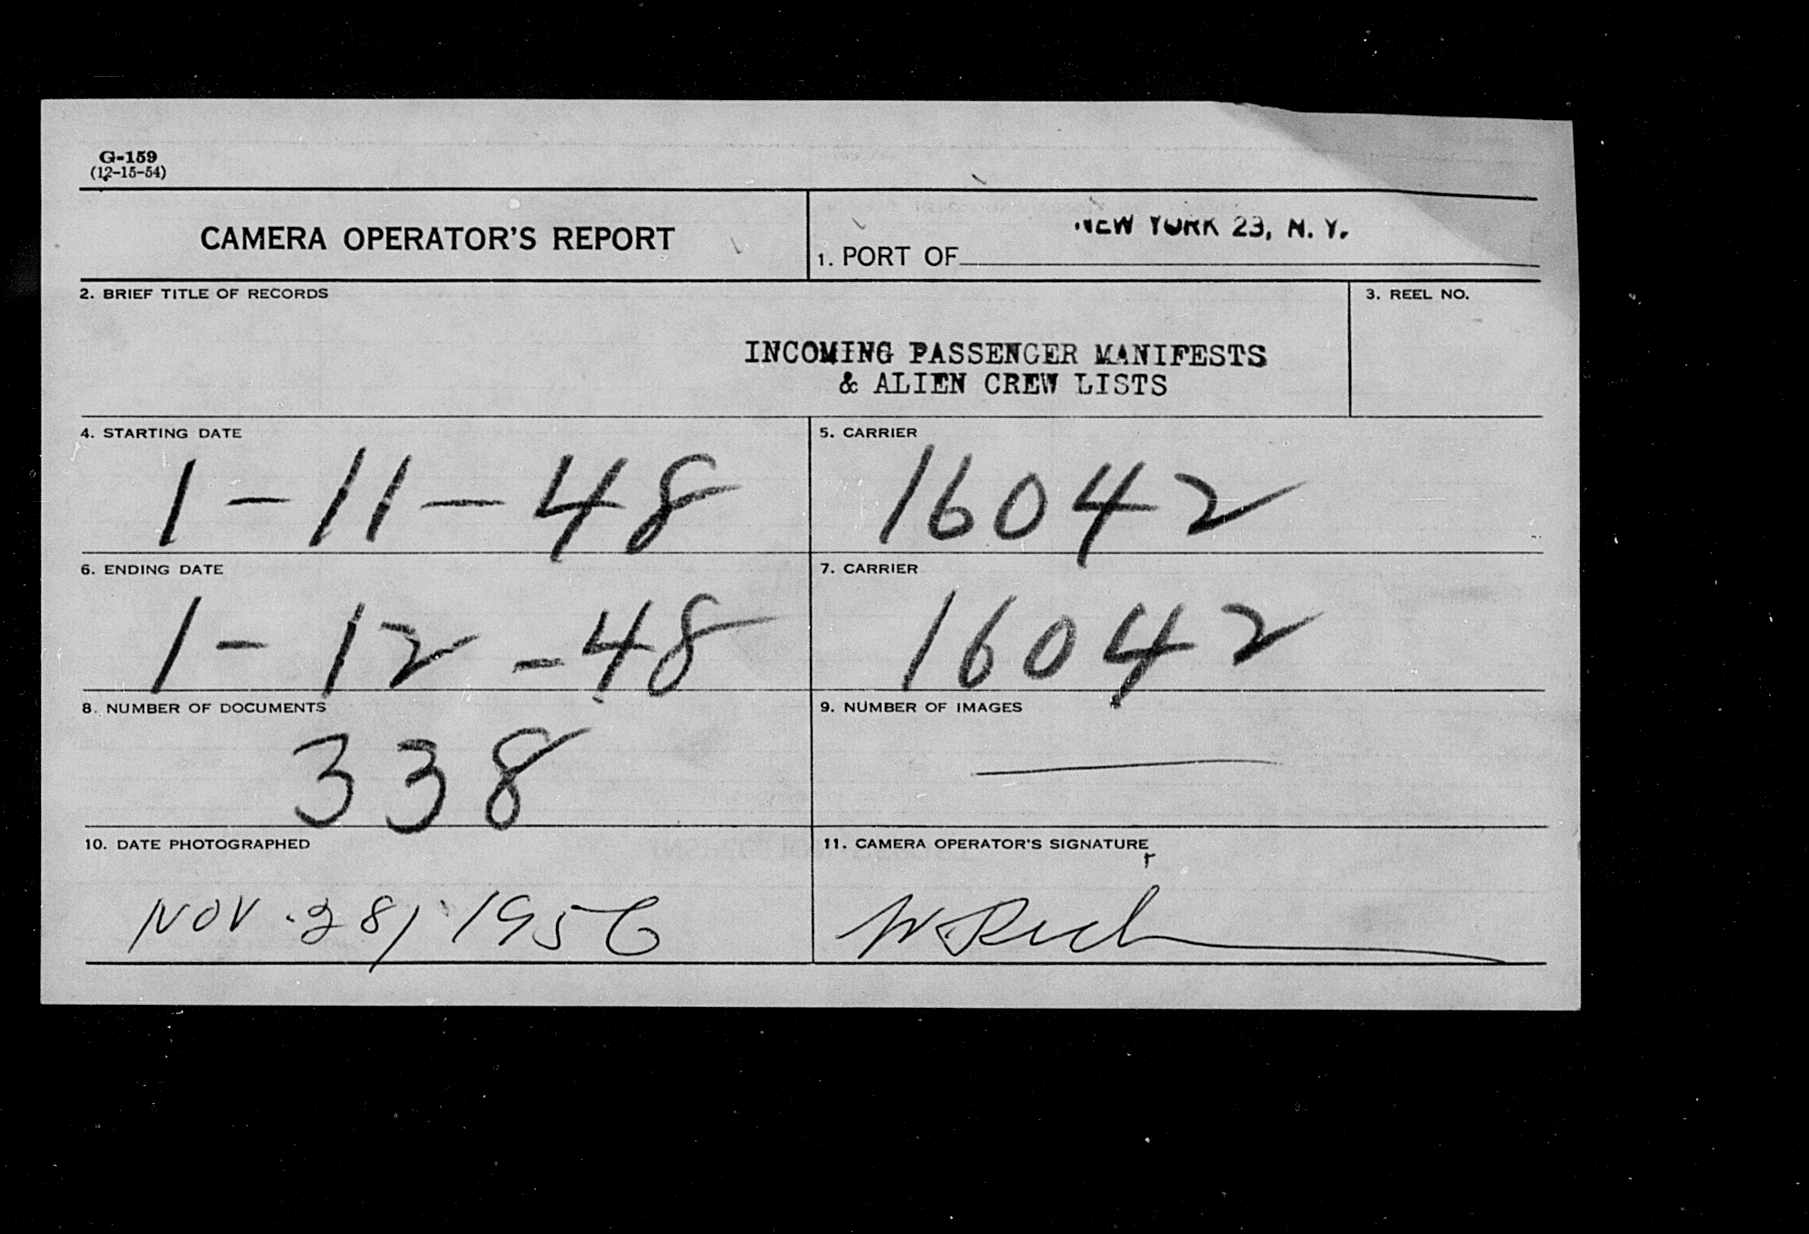 G-159
(12-15-54)
CAMERA OPERATOR'S REPORT
1. PORT OF NEW YORK 23, N. Y.
2. BRIEF TITLE OF RECORDS
3. REEL NO.
INCOMING PASSENGER MANIFESTS
& ALIEN CREW LISTS
4. STARTING DATE
1-11-48
5. CARRIER
16042
6. ENDING DATE
1-12-48
7. CARRIER
16042
8. NUMBER OF DOCUMENTS
338
9. NUMBER OF IMAGES
10. DATE PHOTOGRAPHED
NOV. 28, 1956
11. CAMERA OPERATOR'S SIGNATURE